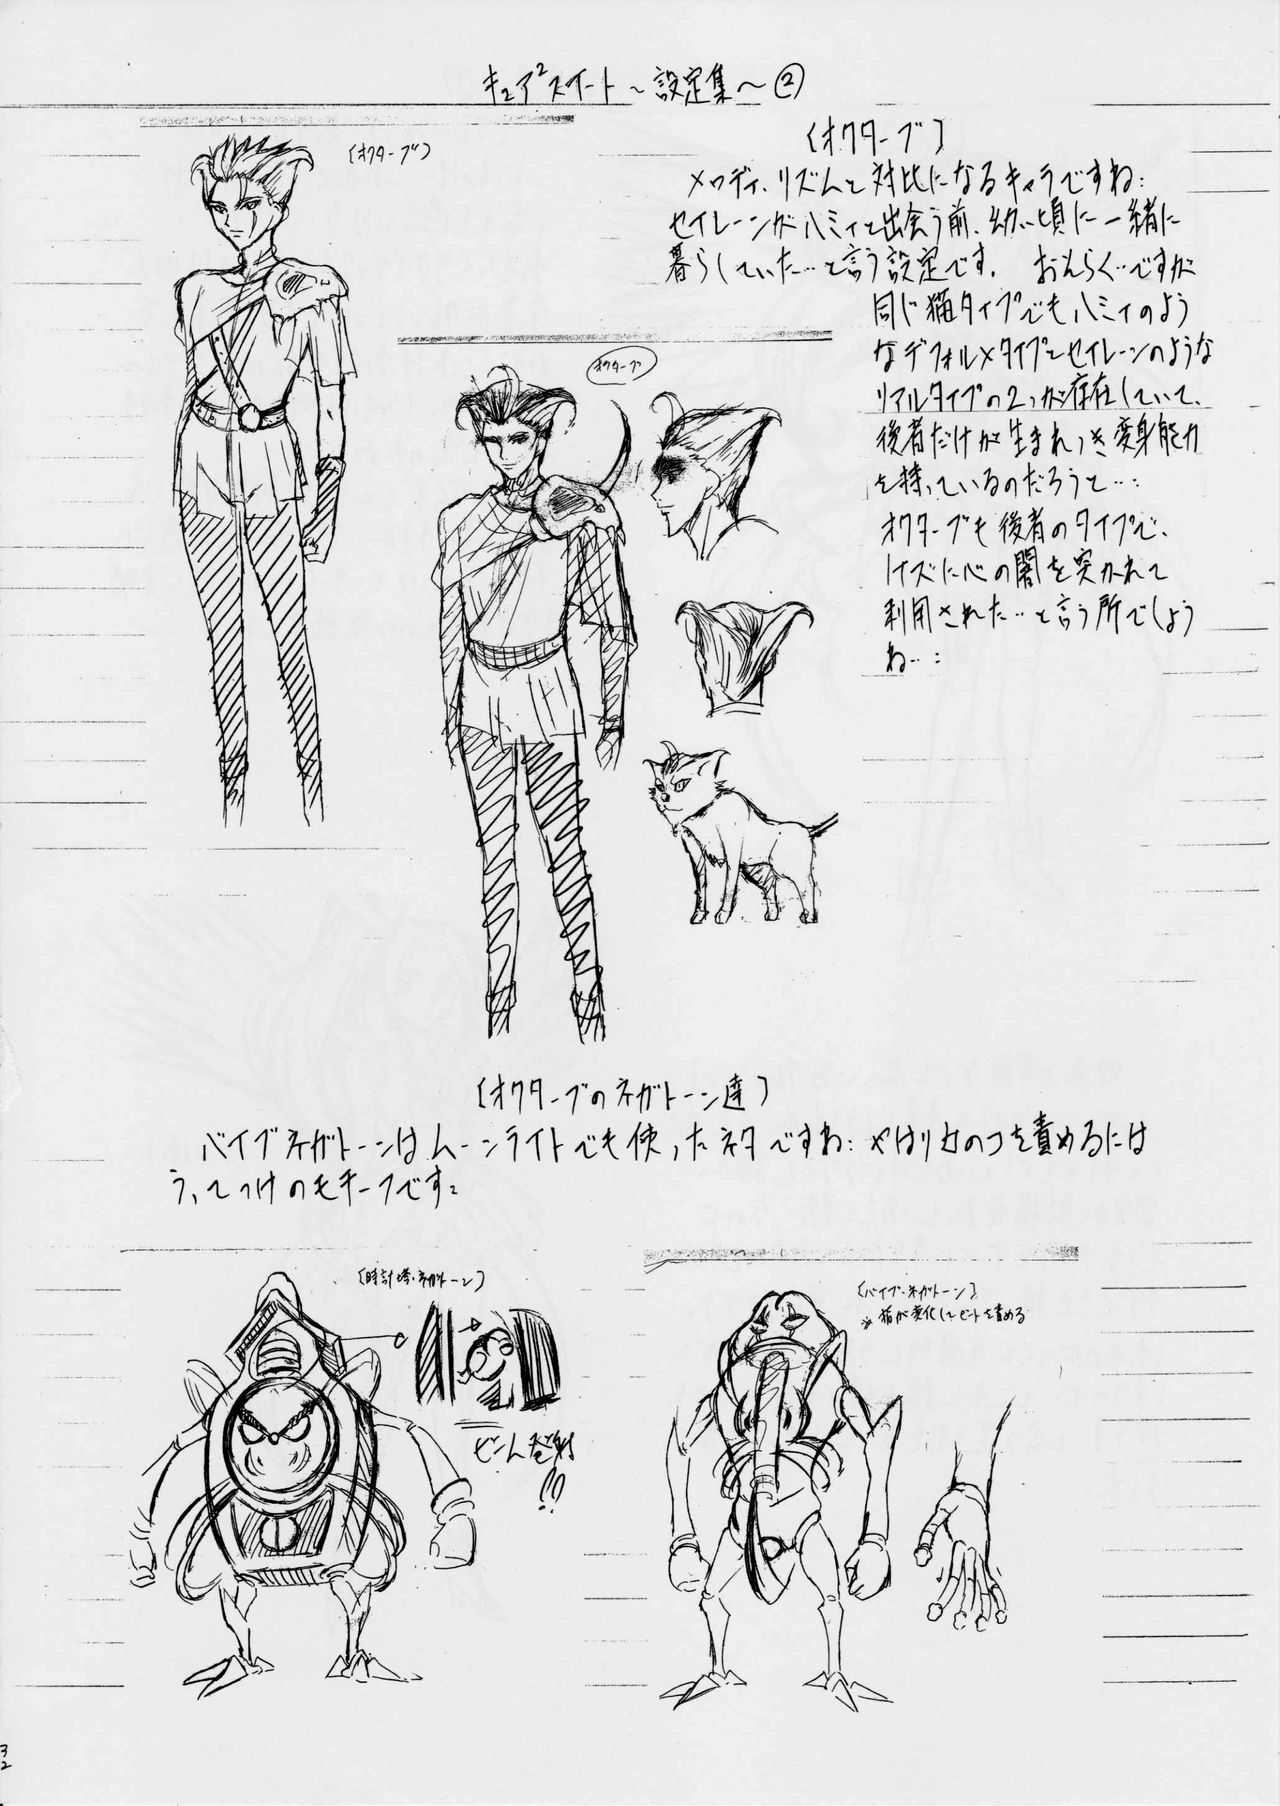 キュア²スイート～設定集～②
〔オクターブ〕
〔オクターブ〕
メロディ、リズムと対比になるキャラですね…
セイレーンがハミィと出会う前、幼い頃に一緒に
暮らしていた…と言う設定です。 おそらく…ですが
同じ猫タイプでもハミィのよう
なデフォルメタイプとセイレーンのような
リアルタイプの2つが存在していて、
後者だけが生まれつき変身能力
を持っているのだろうと…
オクターブも後者のタイプで、
ノイズに心の闇を突かれて
利用された…と言う所でしよう
ね…
オクターブ
〔オクターブのネガトーン達〕
バイブネガトーンはムーンライトでも使ったネタですね… やはり女のコを責めるには
うってつけのモチーフです…
〔時計塔・ネガトーン〕
発射!!
〔バイブ・ネガトーン〕
※猫が変化してビートを責める
32